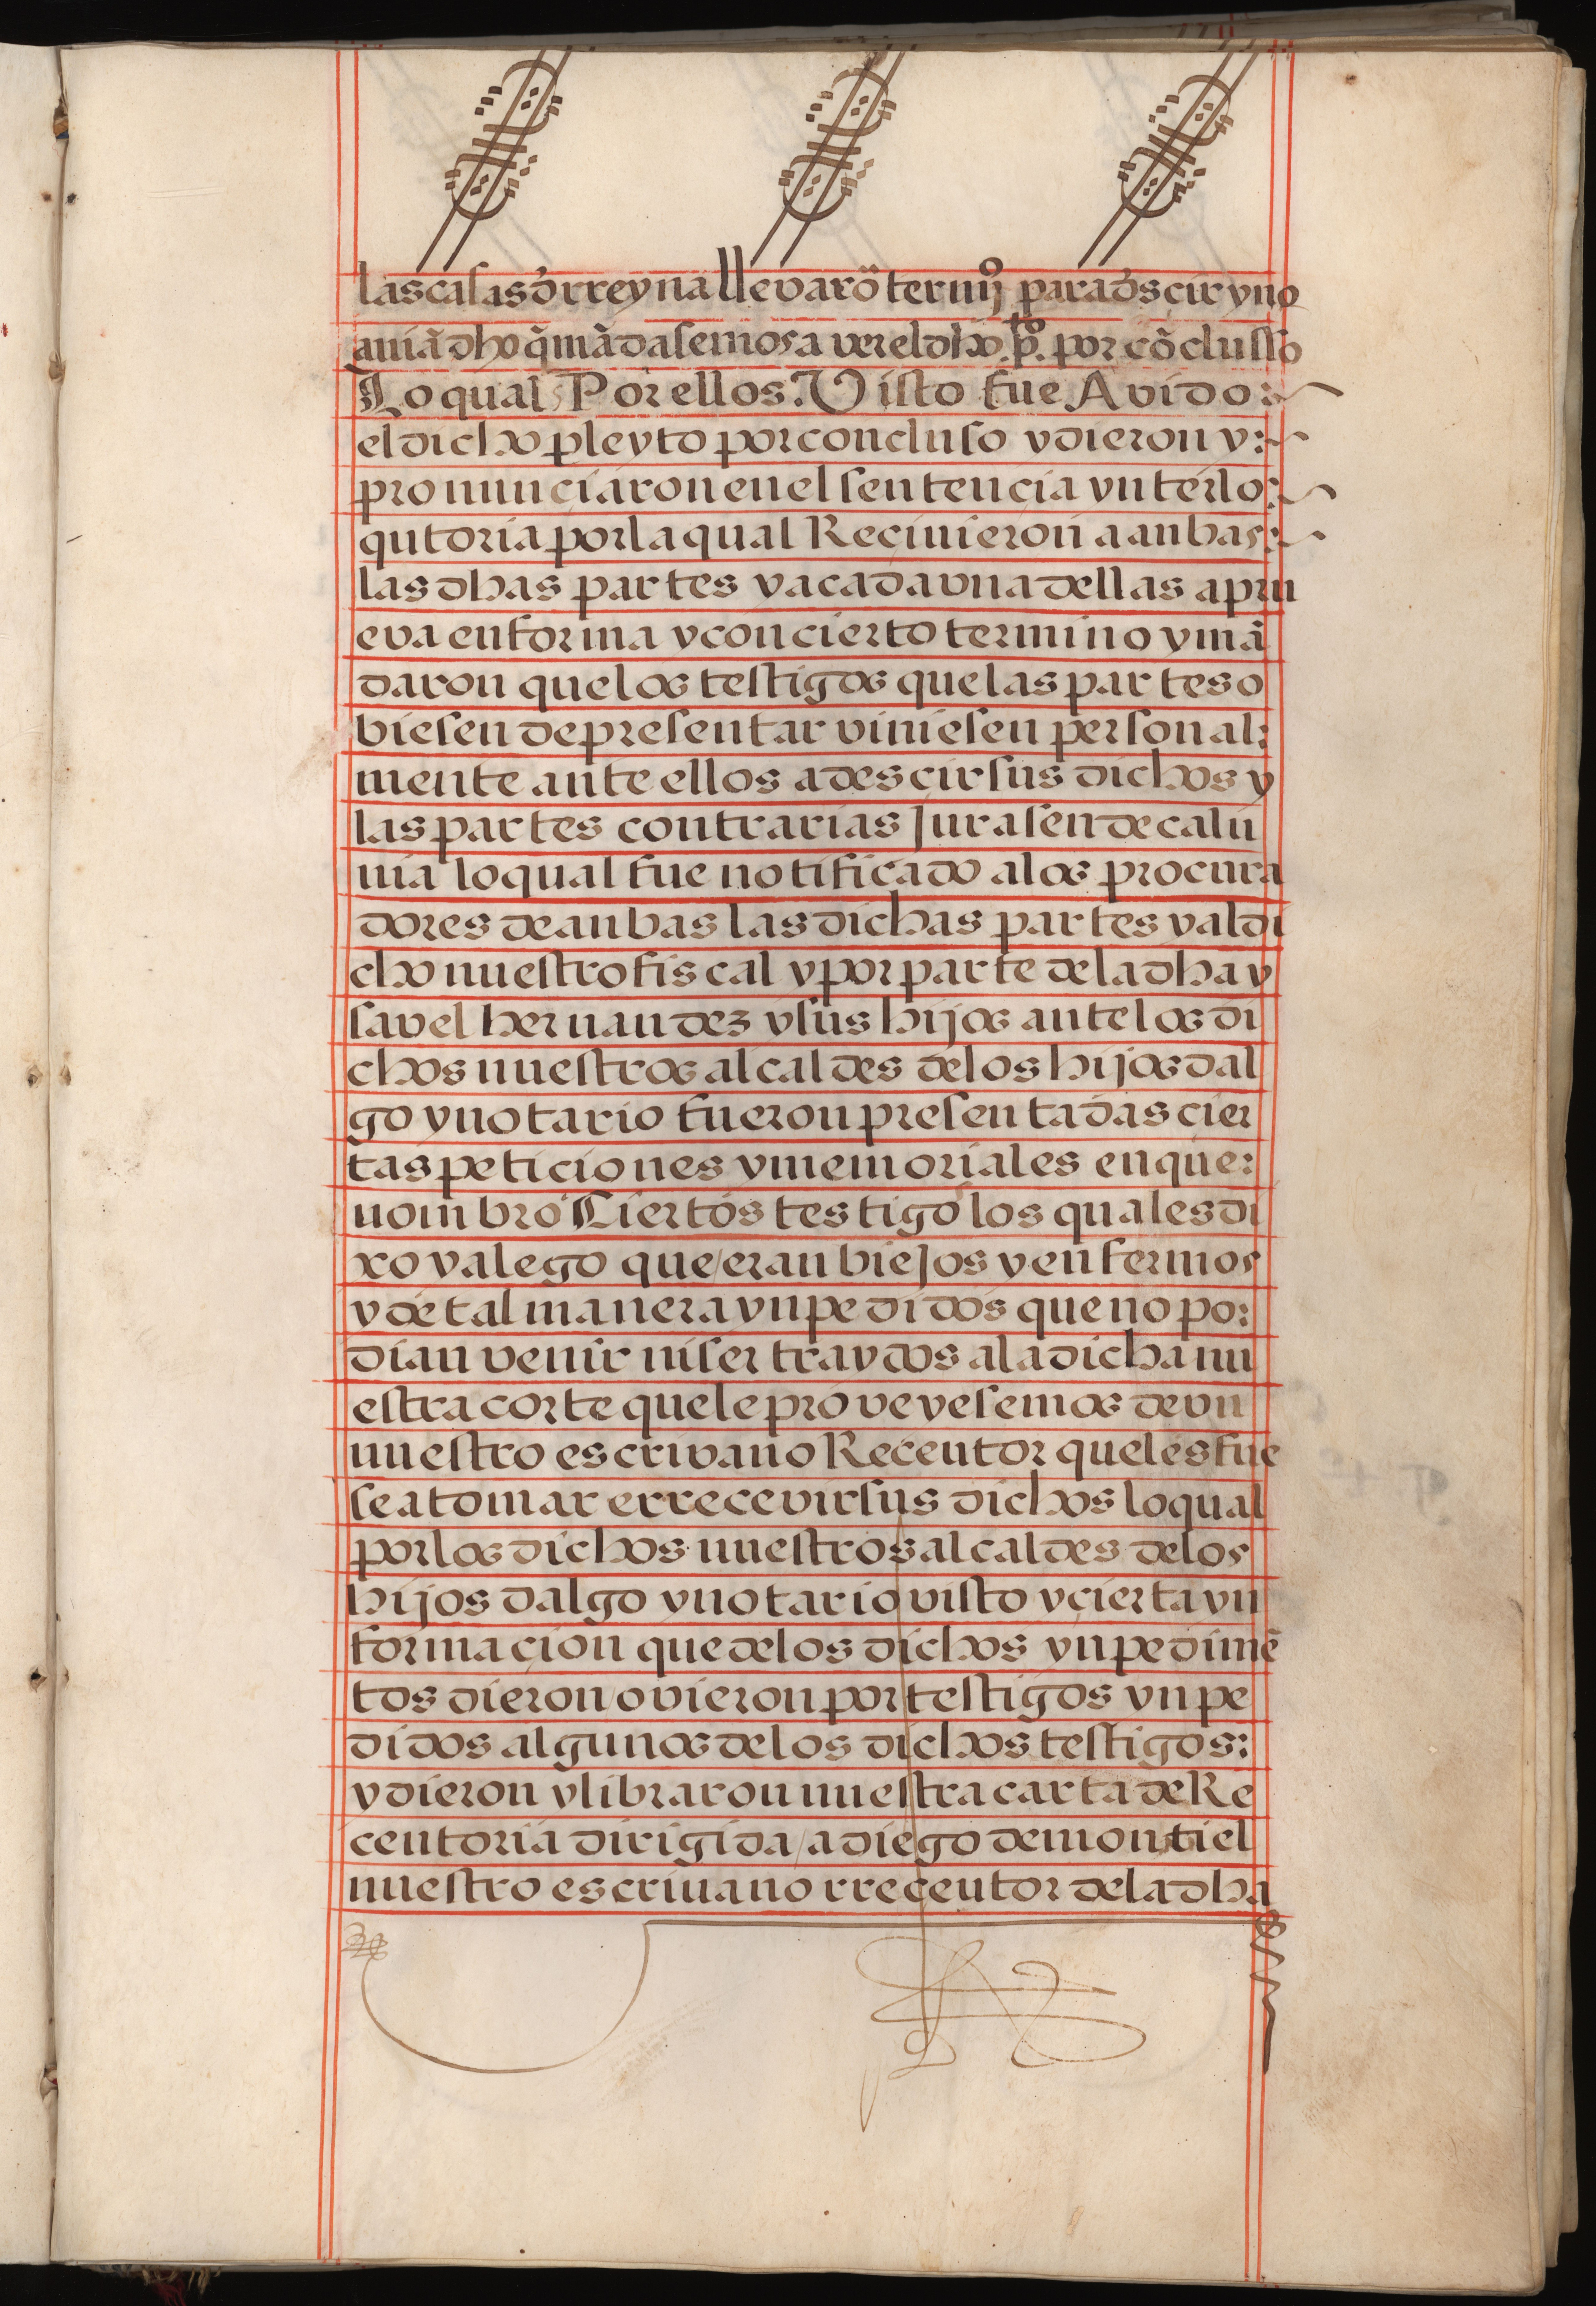 las casas d̃ rreyna llevarõ termi⁹ para d̃s çir y no
aviã dho q̃ mãdasemos a ver el dho .p̱to. por cõclusso
Lo qual Por ellos. Visto fue Avido:
el dicho pleyto por concluso y dieron y:
pronunciaron en el sentencia ynterlo:
qutoria por la qual Reçivieron a anbas:
las dhas partes y a cada vna dellas a pru
eva en forma y con cierto termino y mã
daron que los testigos que las partes o
biesen de presentar viniesen personal:
mente ante ellos a desçir sus dichos y
las partes contrarias Jurasen de calu
nia lo qual fue notificado a los procura
dores de anbas las dichas partes y al di
cho nuestro fiscal y por parte de la dha y
savel hernandez y sus hijos ante los di
chos nuestros alcaldes de los hijos dal
go y notario fueron presentadas cier
tas peticiones y memoriales en que:
nombro Ciertos testigo los quales di
xo y alego que/eran biejos y enfermos
y de tal manera ynpedidos que no po:
dian venir ni ser traydos a la dicha nu
estra corte que le proveyesemos de vn
nuestro escrivano Reçeutor que les fue
se a tomar e rrecevir sus dichos lo qual
por los dichos nuestros alcaldes de los
hijos dalgo y notario visto y çierta yn
formaçion que de los dichos ynpedimẽ
tos dieron/ovieron por testigos ynpe
didos algunos de los dichos testigos:
y dieron y libraron nuestra carta de Re
ceutoria dirigida/a diego de montiel
nuestro escrivano rreçeutor de la dha